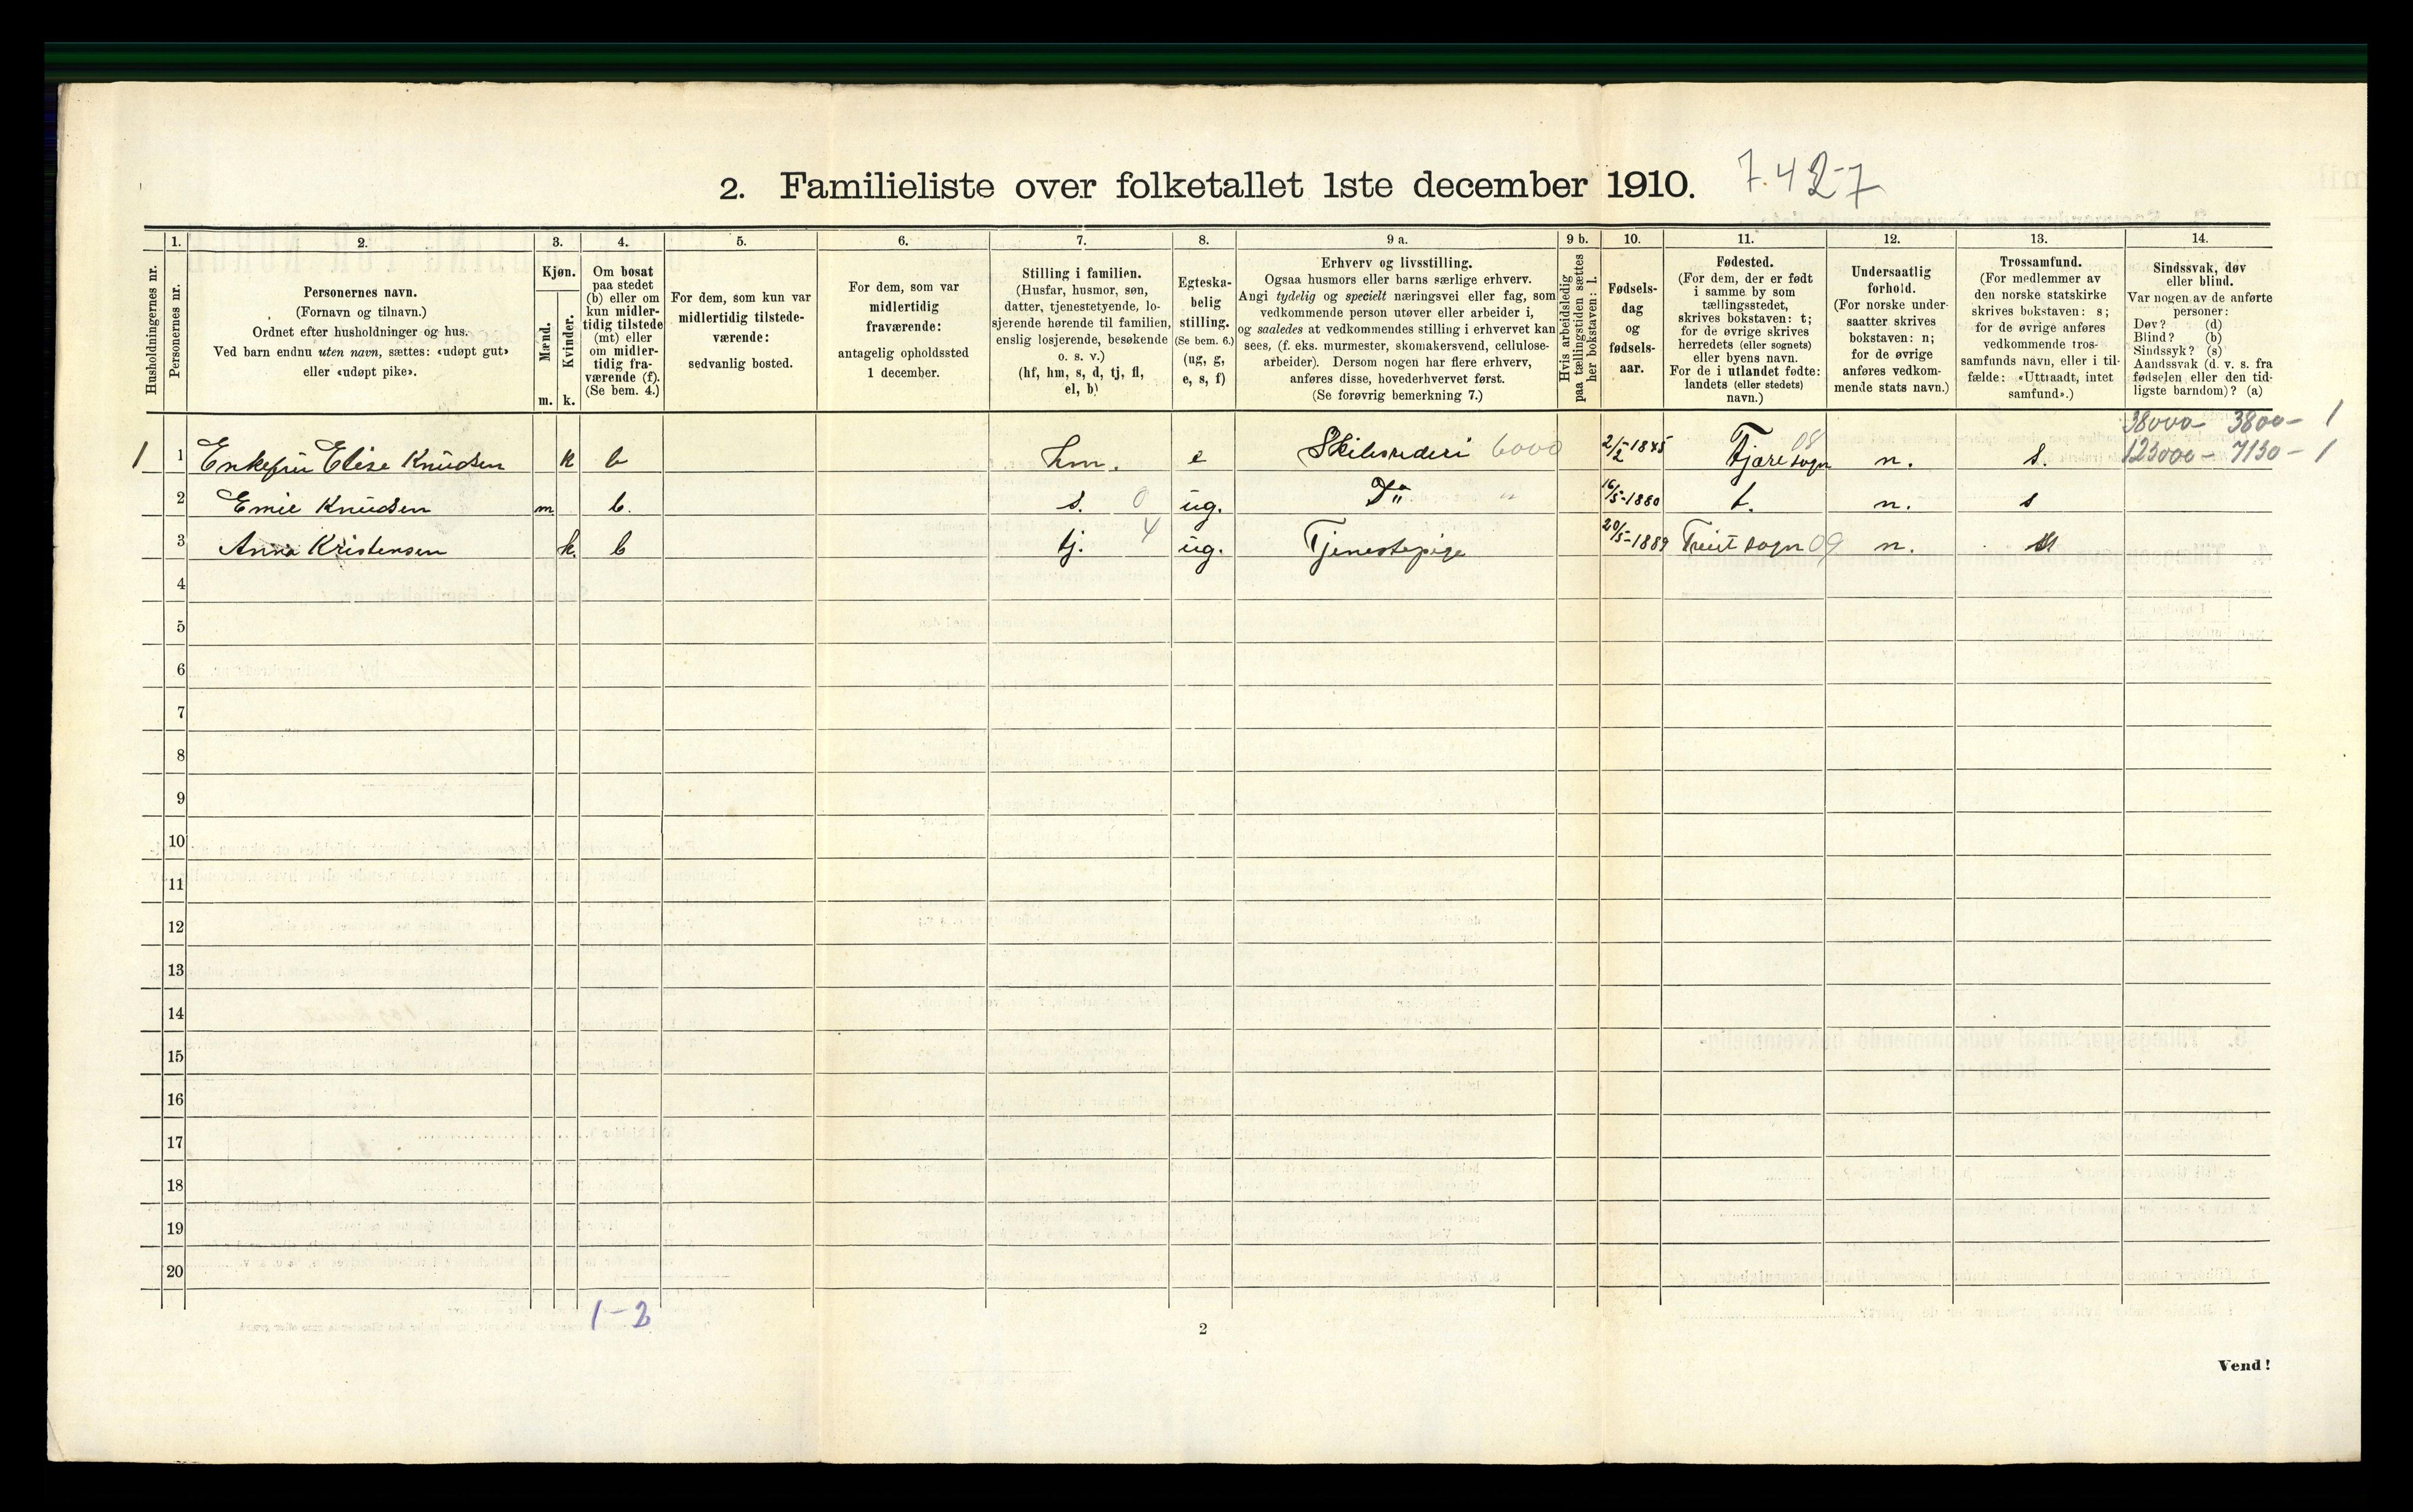 2. Familieliste over folketallet 1ste december 1910. 7.427
Husholdningernes nr.
1. Personernes nr.
2. Personernes navn.
(Fornavn og tilnavn.)
Ordnet efter husholdninger og hus.
Ved barn endnu uten navn, sættes: «udøpt gut»
eller «udøpt pike».
3. Kjøn.
Mænd. m.
Kvinder. k.
4. Om bosat
paa stedet
(b) eller om
kun midler-
tidig tilstede
(mt) eller
om midler-
tidig fra-
værende (f).
(Se bem. 4.)
5. For dem, som kun var
midlertidig tilstede-
værende:
sedvanlig bosted.
6. For dem, som var
midlertidig
fraværende:
antagelig opholdssted
1 december.
7. Stilling i familien.
(Husfar, husmor, søn,
datter, tjenestetyende, lo-
sjerende hørende til familien,
enslig losjerende, besøkende
o. s. v.)
(hf, hm, s, d, tj, fl,
el, b)
8. Egteska-
belig
stilling.
(Se bem. 6.)
(ug, g,
e, s, f)
9 a. Erhverv og livsstilling.
Ogsaa husmors eller barns særlige erhverv.
Angi tydelig og specielt næringsvei eller fag, som
vedkommende person utøver eller arbeider i,
og saaledes at vedkommendes stilling i erhvervet kan
sees, (f. eks. murmester, skomakersvend, cellulose-
arbeider). Dersom nogen har flere erhverv,
anføres disse, hovederhvervet først.
(Se forøvrig bemerkning 7.)
9 b. Hvis arbeidsledig
paa tællingstiden sættes
her bokstaven: l.
10. Fødsels-
dag
og
fødsels-
aar.
11. Fødested.
(For dem, der er født
i samme by som
tællingsstedet,
skrives bokstaven: t;
for de øvrige skrives
herredets (eller sognets)
eller byens navn.
For de i utlandet fødte:
landets (eller stedets)
navn.)
12. Undersaatlig
forhold.
(For norske under-
saatter skrives
bokstaven: n;
for de øvrige
anføres vedkom-
mende stats navn.)
13. Trossamfund.
(For medlemmer av
den norske statskirke
skrives bokstaven: s;
for de øvrige anføres
vedkommende tros-
samfunds navn, eller i til-
fælde: «Uttraadt, intet
samfund».)
14. Sindssvak, døv
eller blind.
Var nogen av de anførte
personer:
Døv? (d)
Blind? (b)
Sindssyk? (s)
Aandssvak (d. v. s. fra
fødselen eller den tid-
ligste barndom)? (a)
38000 - 3800 - 1
1 1 Enkefru Elise Knudsen k b hm. e Skibsrederi 6000 2/2-1845 Fjære sogn 08 n. s. 123000 - 7130 - 1
2 Emil Knudsen m b. s. 0 ug. Do " 16/5-1880 t. n. s
3 Anna Kristensen k. b tj. 4 ug. Tjenestepige 20/5-1889 sogn 09 n. s
4
5
6
7
8
9
10
11
12
13
14
15
16
17
18
19
20
1-2
2
Vend!